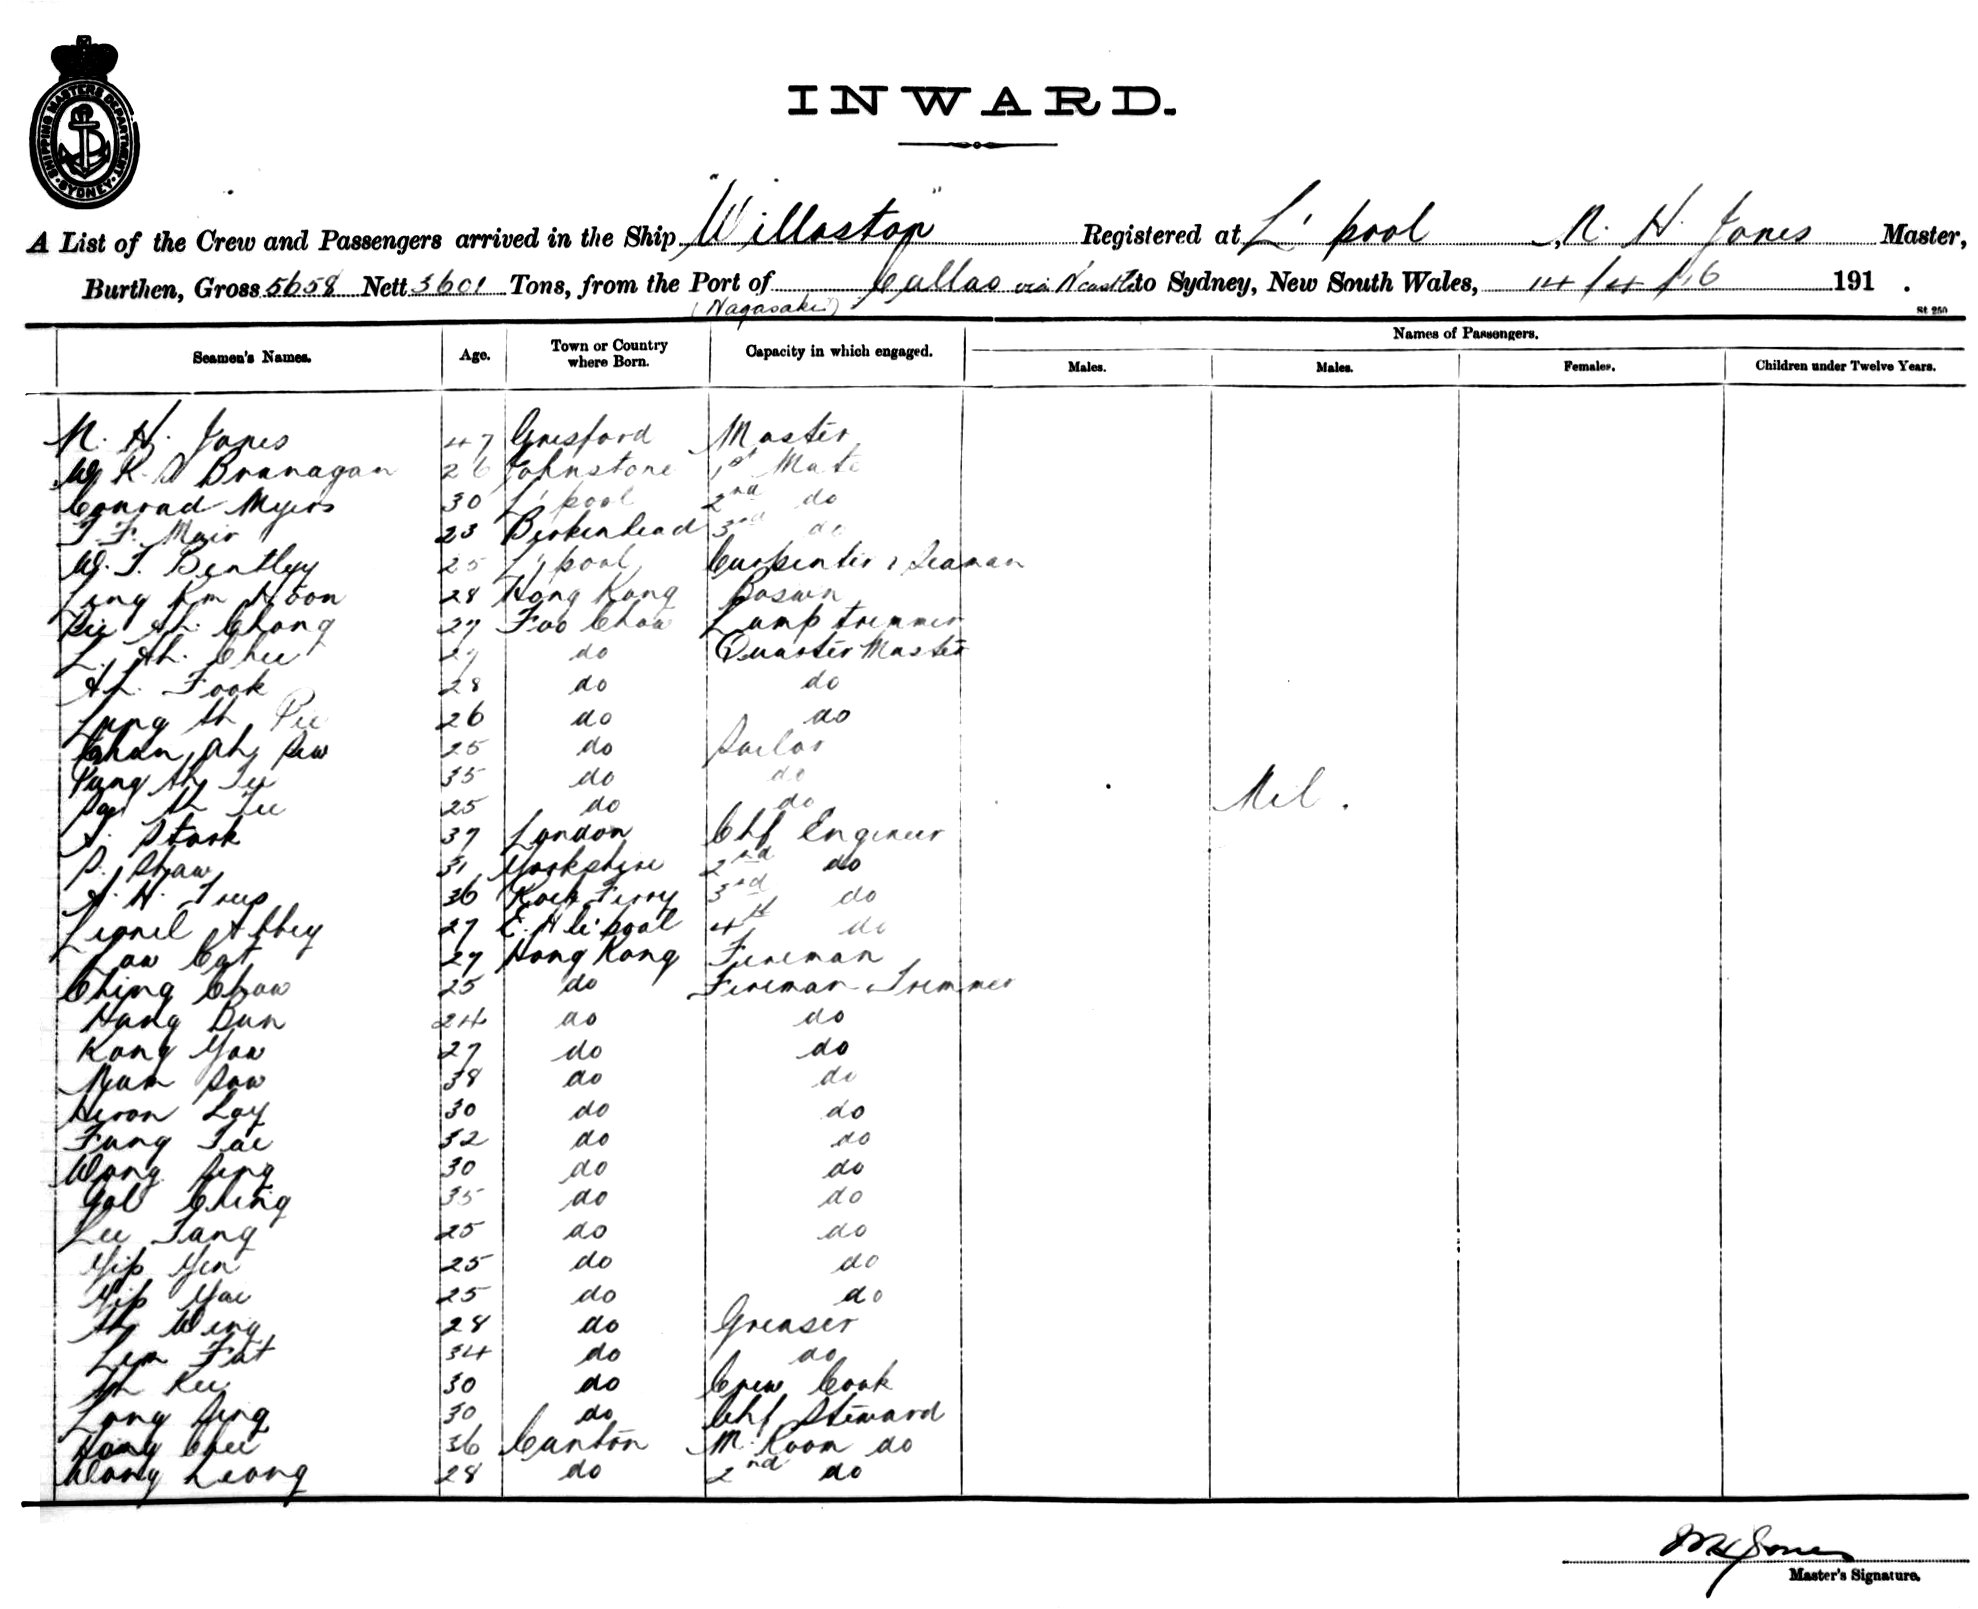 SHIPPING MASTERS DEPARTMENT SYDNEY
INWARD.
A List of the Crew and Passengers arrived in the Ship "Willaston" Registered at L'pool, N. H. Jones Master,
Burthen, Gross 5658 Nett 3601 Tons, from the Port of Callao via N'castle to Sydney, New South Wales, 14/4/16 191 .
(Nagasaki)
St 250
Seamen's Names. Age. Town or Country where Born. Capacity in which engaged. Names of Passengers.
Males. Males. Females. Children under Twelve Years.
N. H. Jones 47 Gresford Master
W K Branagan 26 Johnstone 1st Mate
Conrad Myers 30 L'pool 2nd do
F. Muir 23 Birkenhead 3rd do
W. J. Bentley 25 L'pool Carpenter & Seaman
Ling Hoon 28 Hong Kong Bosun
Ah. Chong 27 Foo Chow Lamp trimmer
L. Ah. Chee 27 do Quarter Master
Ah. Fook 28 do do
Lung Ah Pee 26 do do
Chan Ah Sew 25 do Sailor
Pang Ah 35 do do
Ah 25 do do
Nil.
A. Stark 37 London Chf Engineer
S. Shaw 31 Yorkshire 2nd do
A. H. 36 Rock Ferry 3rd do
Lionel Abbey 27 E. H'le'pool 4th do
Low Cat 27 Hong Kong Fireman
Ching Chow 25 do Fireman & Trimmer
Hang Bun 24 do do
Kong Yow 27 do do
Mum Sow 38 do do
Loy 30 do do
Fung Tai 32 do do
Wong Sing 30 do do
Ching 35 do do
Lee Tang 25 do do
Yip Yen 25 do do
Yip Yai 25 do do
Ah Wing 28 do Greaser
Lem Fat 34 do do
Ah Kee 30 do Crew Cook
Long Sing 30 do Chf Steward
Hong Chee 36 Canton M. Room do
Wong Leong 28 do 2nd do
N H Jones
Master's Signature.